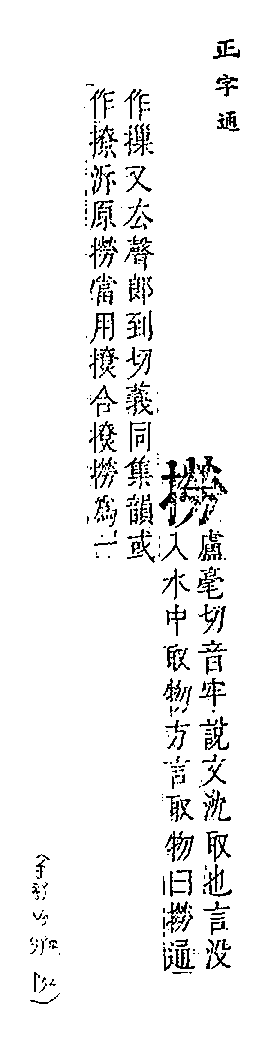 正字通
撈
盧毫切音牢說文沈取也言没
入水中取物方言取物曰撈通
作摷又去聲郎到切義同集韻或
作撩泝原撈當用撩合撩撈為一